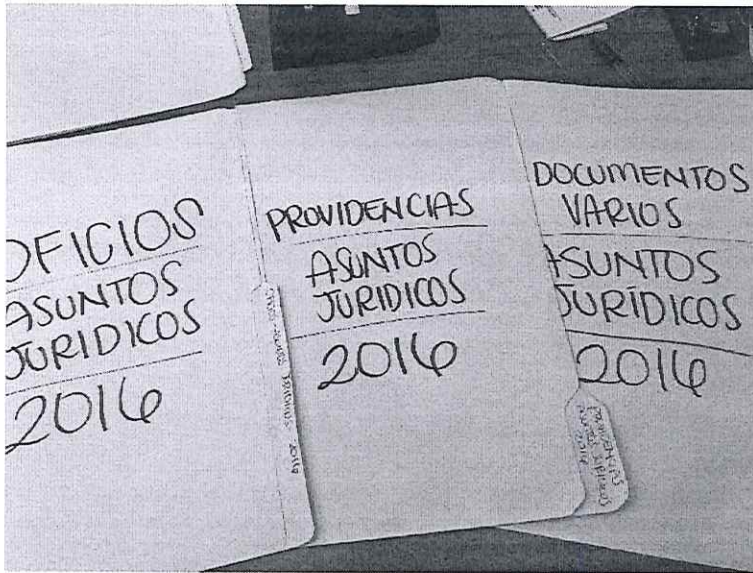 OFICIOS
ASUNTOS
JURIDICOS
2016
PROVIDENCIAS
ASUNTOS
JURIDICOS
2016
DOCUMENTOS
VARIOS
ASUNTOS
JURÍDICOS
2016